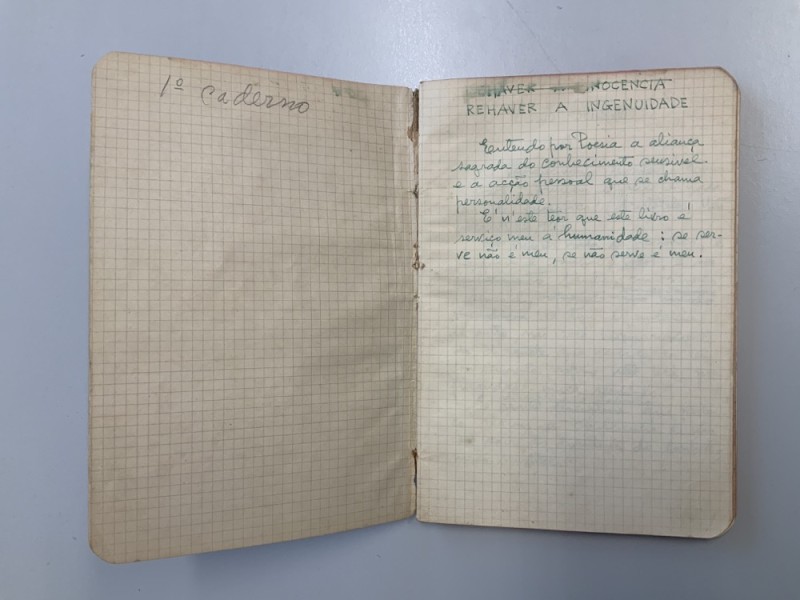 1º caderno
INOCENCIA
REHAVER A INGENUIDADE
Entendo por Poesia a aliança
sagrada do conhecimento sensivel
e a acção pessoal que se chama
personalidade.
E' n'este teôr que este livro é
serviço meu á humanidade: se ser-
ve não é meu, se não serve é meu.